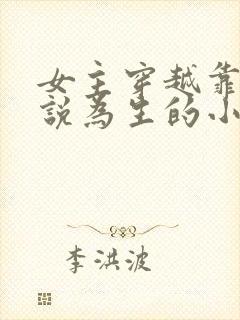 女主穿越靠
說為生的小
李洪波